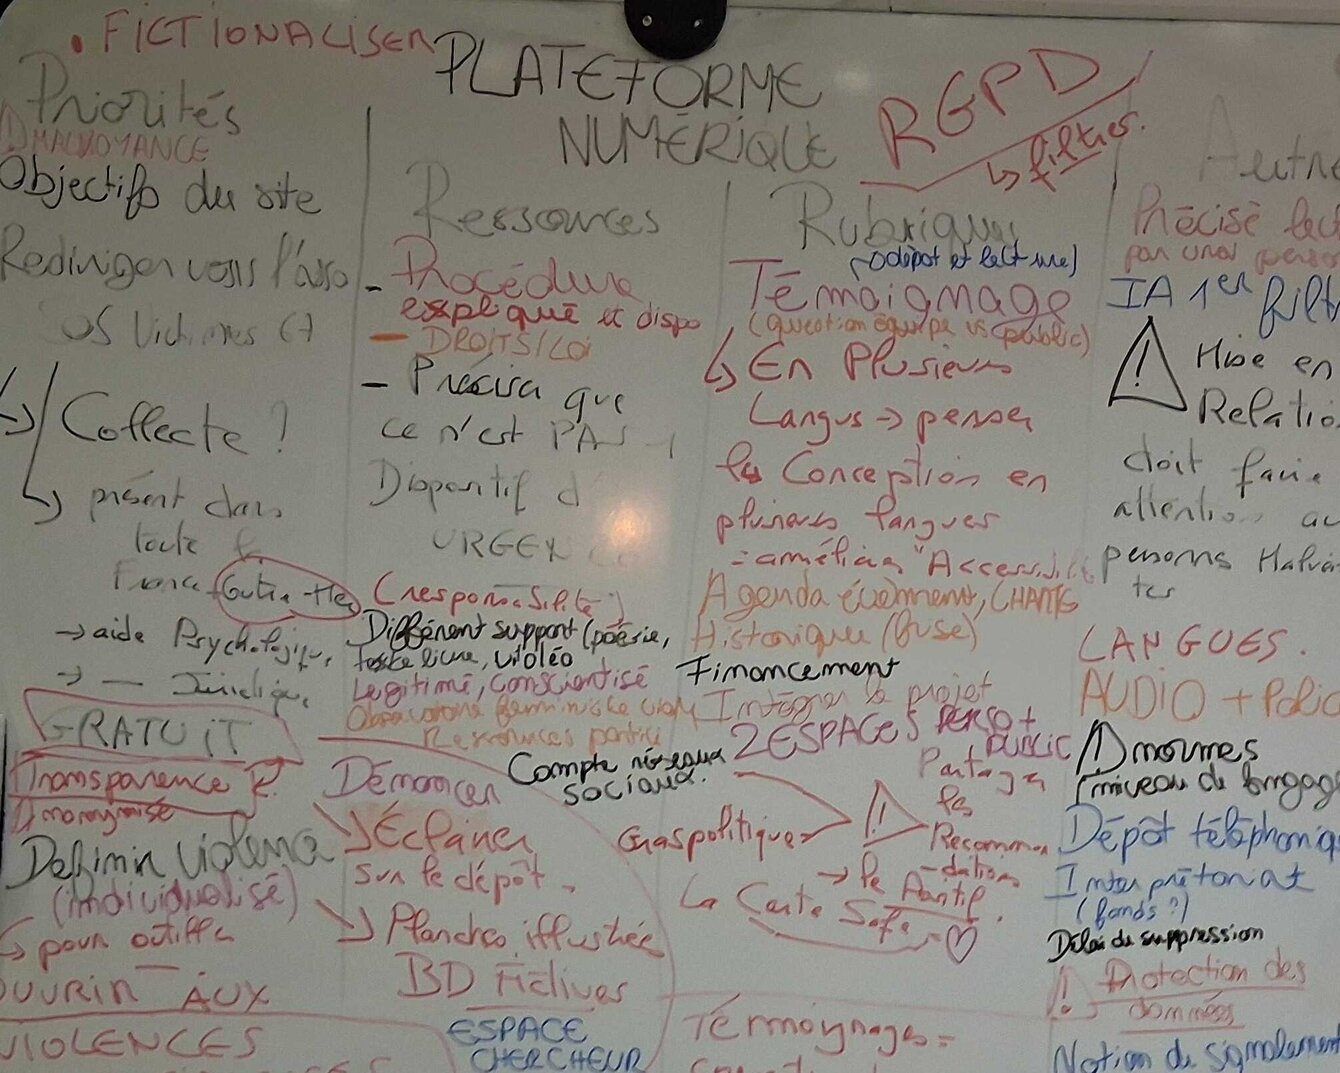 • FICTIONALISER
PLATEFORME
NUMÉRIQUE
RGPD
↳ filtres.
Priorités
MALVOYANCE
Objectifs du site
Rediriger vers l'asso
os Victimes
↳ Collecte ?
↳ présent dans
toute
France + Outre-Mer
→ aide Psychologique
→ — Juridique
GRATUIT
Transparence
Anonymisé
Définir violence
(individualisé)
↳ pour outiller
OUVRIR AUX
VIOLENCES
Ressources
- Procédure
expliqué et dispo
- DROITS/LOI
- Précisr que
ce n'est PAS
Dispositif d
URGEN
(responsabilité)
Différent support (poésie,
texte livre, vidéo
Légitimé, conscientisé
Observatoire féministe
Ressources
Dénoncer
Compte réseaux
sociaux.
↘ Éclairer
sur le dépôt.
↘ Planches illustrée
BD Fictives
ESPACE
CHERCHEUR
Rubriques
(dépôt et lecture)
Témoignage
(question équipe vs public)
↳ En Plusieurs
Langus → penser
la Conception en
plusieurs langues
Agenda évènement, CHANTS
Historique (fuse)
Financement
Intégrer le projet
2 ESPACES PERSO +
PUBLIC
Partager
les
Recomman
-dations
→ le Pantif
La Carte Safe ♡
Témoignages =
Autre
Précisé
IA 1er filt
⚠ Mise en
Relatio
doit faire
attention au
LANGUES.
AUDIO +
normes
niveau de langag
Dépôt téléphoniq
Interprétariat
(fonds ?)
Délai de suppression
! Protection des
données
Notion de signalement